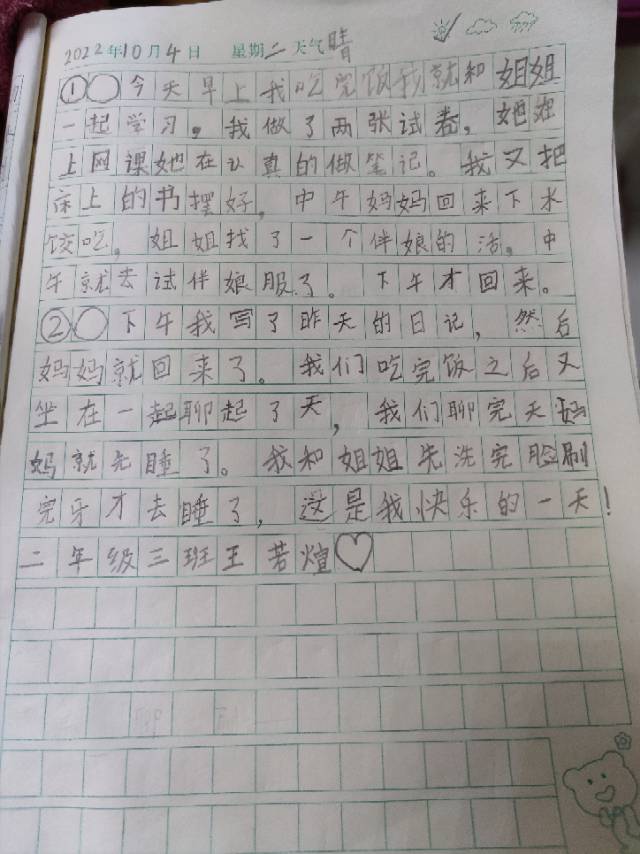 2022年10月4日 星期二 天气晴
①○今天早上我吃完饭我就和姐姐
一起学习。我做了两张试卷，她在
上网课她在认真的做笔记。我又把
床上的书摆好，中午妈妈回来下水
饺吃，姐姐找了一个伴娘的活。中
午就去试伴娘服了。下午才回来。
②○下午我写了昨天的日记，然后
妈妈就回来了。我们吃完饭之后又
坐在一起聊起了天，我们聊完天妈
妈就先睡了。我和姐姐先洗完脸刷
完牙才去睡了，这是我快乐的一天！
二年级三班王若煊♡